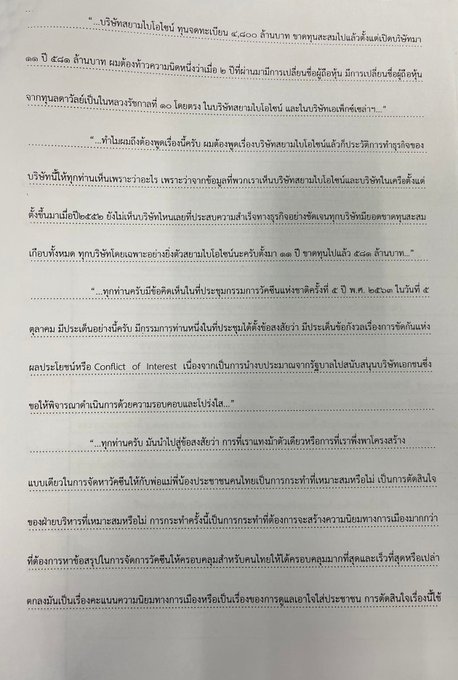 “...บริษัทสยามไบโอไซน์ ทุนจดทะเบียน ๔,๘๐๐ ล้านบาท ขาดทุนสะสมไปแล้วตั้งแต่เปิดบริษัทมา
๑๑ ปี ๕๘๑ ล้านบาท ผมต้องท้าวความนิดหนึ่งว่าเมื่อ ๒ ปีที่ผ่านมามีการเปลี่ยนชื่อผู้ถือหุ้น มีการเปลี่ยนชื่อผู้ถือหุ้น
จากทุนลดาวัลย์เป็นในหลวงรัชกาลที่ ๑๐ โดยตรง ในบริษัทสยามไบโอไซน์ และในบริษัทเอเพ็กซ์เซล่าฯ...”
“...ทำไมผมถึงต้องพูดเรื่องนี้ครับ ผมต้องพูดเรื่องบริษัทสยามไบโอไซน์แล้วก็ประวัติการทำธุรกิจของ
บริษัทนี้ให้ทุกท่านเห็นเพราะว่าอะไร เพราะว่าจากข้อมูลที่พวกเราเห็นบริษัทสยามไบโอไซน์และบริษัทในเครือตั้งแต่
ตั้งขึ้นมาเมื่อปี๒๕๕๒ ยังไม่เห็นบริษัทไหนเลยที่ประสบความสำเร็จทางธุรกิจอย่างชัดเจนทุกบริษัทมียอดขาดทุนสะสม
เกือบทั้งหมด ทุกบริษัทโดยเฉพาะอย่างยิ่งตัวสยามไบโอไซน์นะครับตั้งมา ๑๑ ปี ขาดทุนไปแล้ว ๕๘๑ ล้านบาท...”
“...ทุกท่านครับมีข้อคิดเห็นในที่ประชุมกรรมการวัคซีนแห่งชาติครั้งที่ ๕ ปี พ.ศ. ๒๕๖๓ ในวันที่ ๕
ตุลาคม มีประเด็นอย่างนี้ครับ มีกรรมการท่านหนึ่งในที่ประชุมได้ตั้งข้อสงสัยว่า มีประเด็นข้อกังวลเรื่องการขัดกันแห่ง
ผลประโยชน์หรือ Conflict of Interest เนื่องจากเป็นการนำงบประมาณจากรัฐบาลไปสนับสนุนบริษัทเอกชนซึ่ง
ขอให้พิจารณาดำเนินการด้วยความรอบคอบและโปร่งใส...”
“...ทุกท่านครับ มันนำไปสู่ข้อสงสัยว่า การที่เราแทงม้าตัวเดียวหรือการที่เราพึ่งพาโครงสร้าง
แบบเดียวในการจัดหาวัคซีนให้กับพ่อแม่พี่น้องประชาชนคนไทยเป็นการกระทำที่เหมาะสมหรือไม่ เป็นการตัดสินใจ
ของฝ่ายบริหารที่เหมาะสมหรือไม่ การกระทำครั้งนี้เป็นการกระทำที่ต้องการจะสร้างความนิยมทางการเมืองมากกว่า
ที่ต้องการหาข้อสรุปในการจัดการวัคซีนให้ครอบคลุมสำหรับคนไทยให้ได้ครอบคลุมมากที่สุดและเร็วที่สุดหรือเปล่า
ตกลงมันเป็นเรื่องคะแนนความนิยมทางการเมืองหรือเป็นเรื่องของการดูแลเอาใจใส่ประชาชน การตัดสินใจเรื่องนี้ใช้